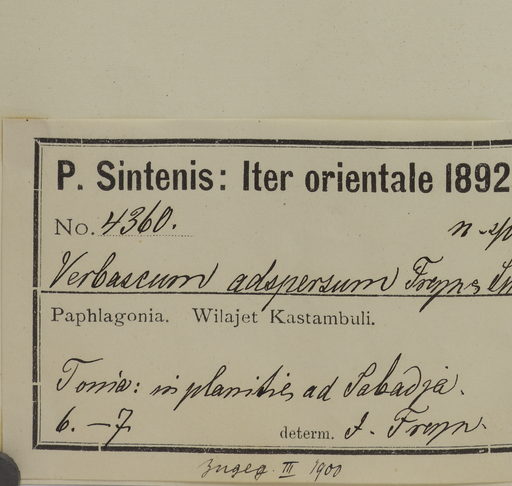 P. Sintenis: Iter orientale 1892
No. 4360. n. sp
Verbascum adspersum Freyn &
Paphlagonia. Wilajet Kastambuli.
Tonia: in planitie ad Sabadja.
6. — 7. determ. J. Freyn.
zugeg. III 1900